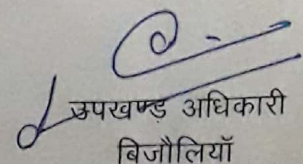 उपखण्ड़ अधिकारी
बिजौलियॉ